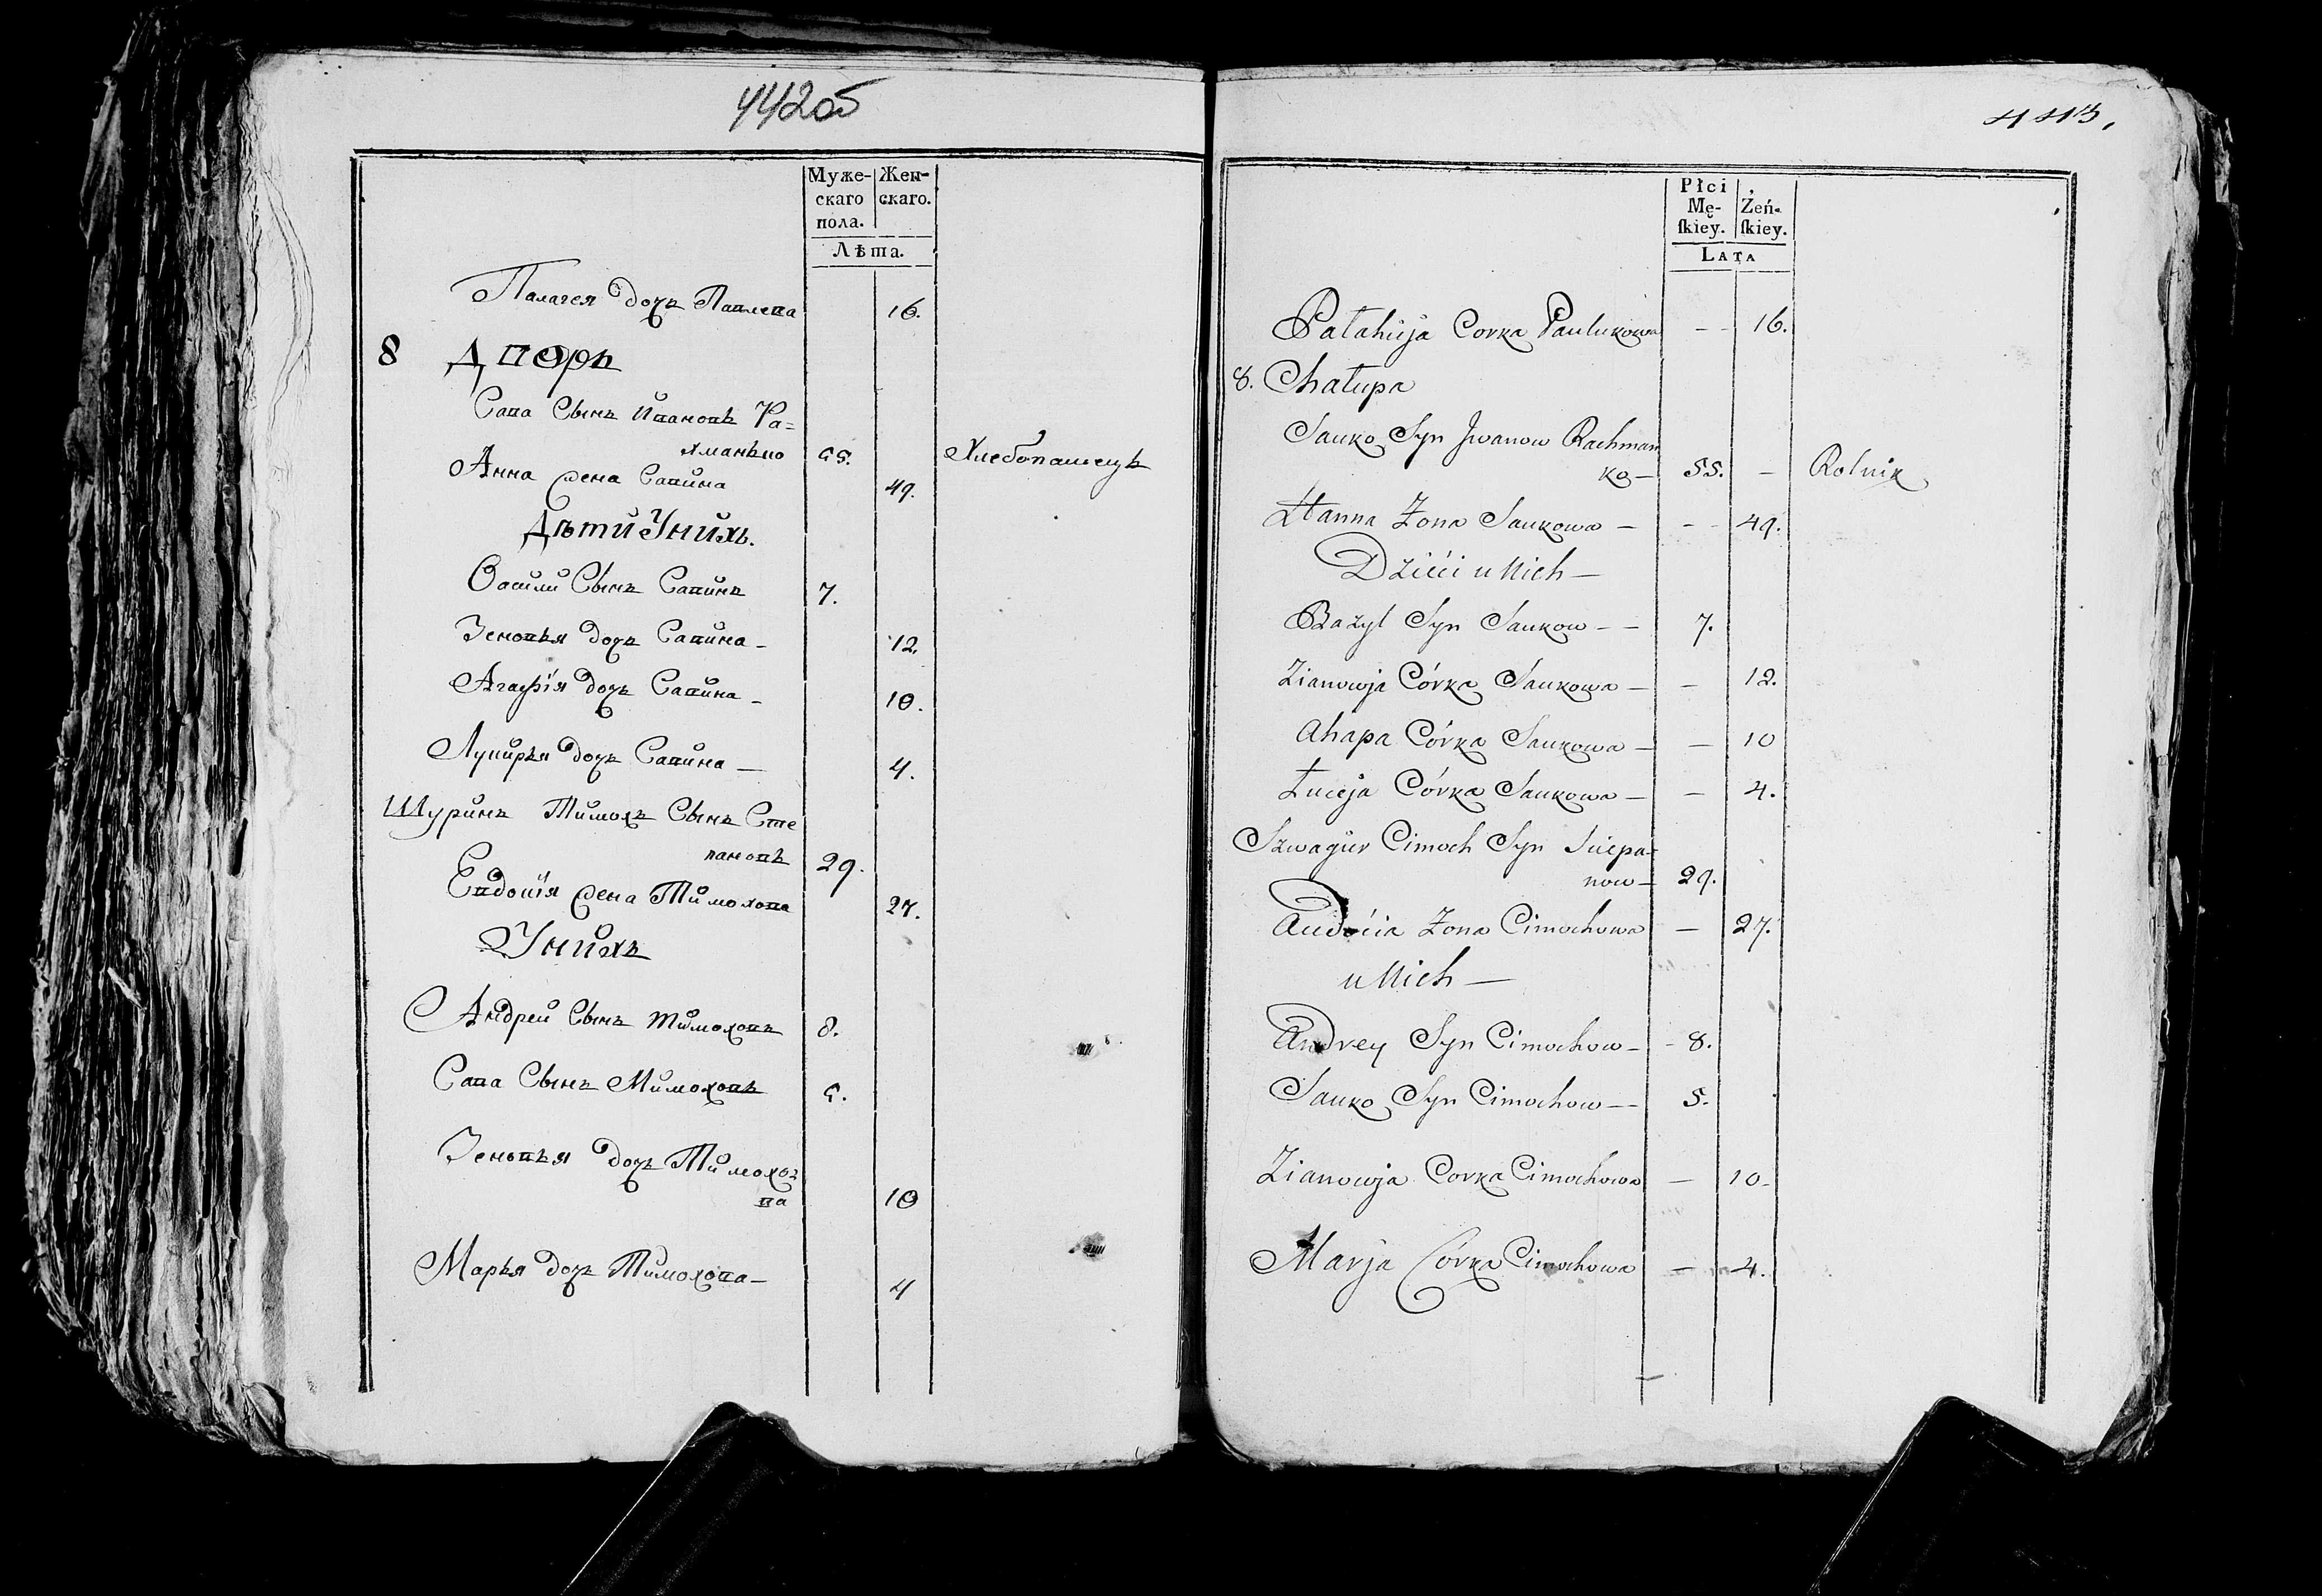 442об
Муже-
скаго
пола.
Жен-
скаго.
Лѣта.
Палагея дочь Павлова 16.
8 Дворъ
Сава Сынъ Ивановъ Ра=
хманько 55. Хлебопашецъ
Анна жена Савина 49.
Дѣти Унихъ.
Васили Сынъ Савинъ 7.
Зеновья дочь Савина - 12.
Агафія дочь Савина - 10.
Лукирья дочь Савина - 4.
Шуринъ Тимохъ Сынъ Сте
пановъ 29.
Евдокія жена Тимохова 27.
Унихъ
Андрей Сынъ Тимоховъ 8.
Сава Сынъ Тимоховъ 5.
Зеновья дочь Тимохо=
ва 10
Марья дочь Тимохова - 4
443.
Płci
Mę-
skiey.
Zeń-
skiey.
LATA
Pałahieja Corka Paulukowa - - 16.
8. Chałupa
Sauko Syn Jwanow Rachman
ko - 55. - Rolnik
Hanna Zona Saukowa - - - 49.
Dzieci u Nich -
Bazyl Syn Saukow - - 7.
Zianowja Córka Saukowa - - 12.
Ahapa Córka Saukowa - - 10
Łuceja Córka Saukowa - - 4.
Szwagier Cimoch Syn Sciepa=
now - 29.
Audocia Zona Cimochowa - 27.
u Nich -
Andrey Syn Cimochow - - 8.
Sauko Syn Cimochow - - 5.
Zianowja Corka Cimochowa - 10 -
Marja Córka Cimochowa - 4.